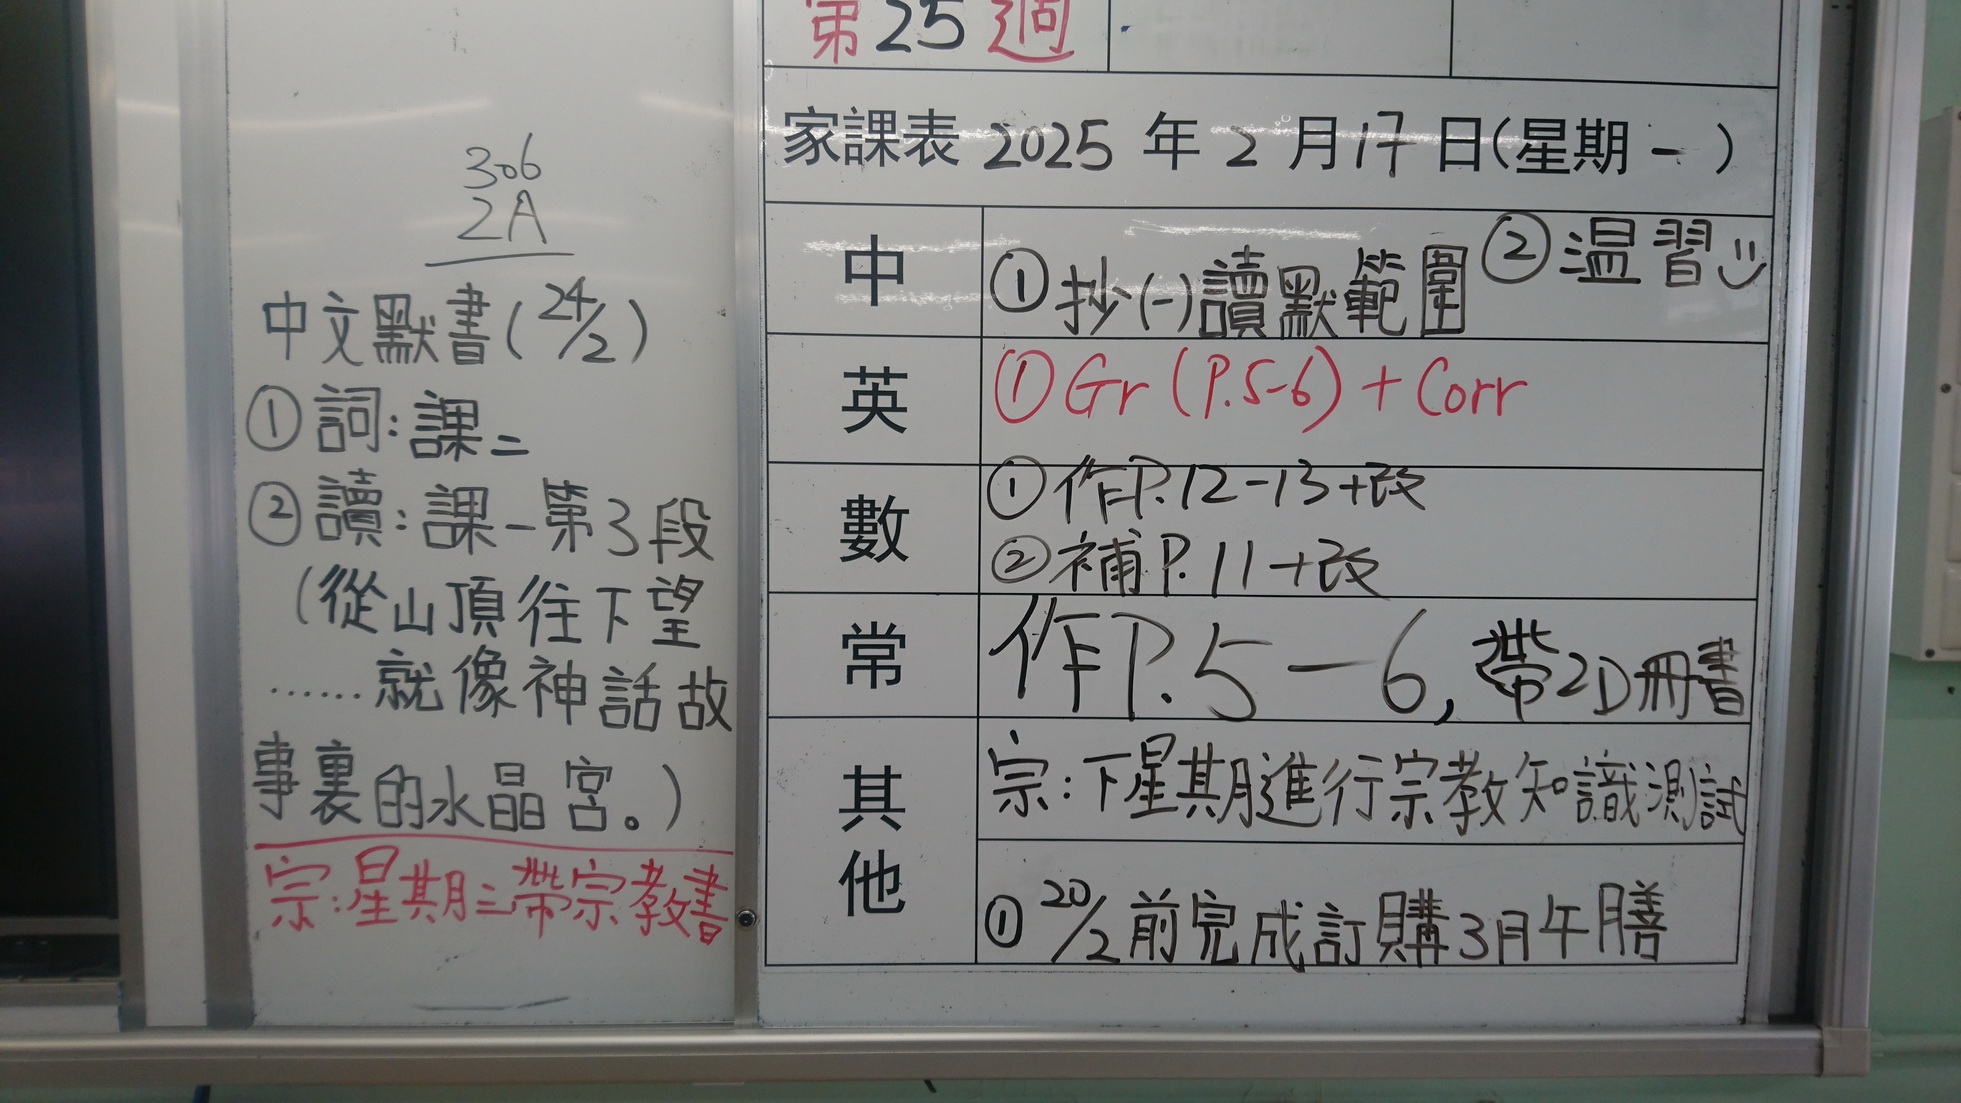 306
2A
中文默書(24/2)
①詞:課二
②讀:課一第3段
(從山頂往下望
……就像神話故
事裏的水晶宮。)
宗:星期二帶宗教書
第25週
家課表 2025 年 2 月 17 日(星期 一 )
中
①抄(一)讀默範圍 ②温習
英
①Gr (P.5-6) + Corr
數
①作P.12-13+改
②補P.11+改
常
作P.5-6, 帶2D冊書
其他
宗:下星期進行宗教知識測試
①20/2前完成訂購3月午膳